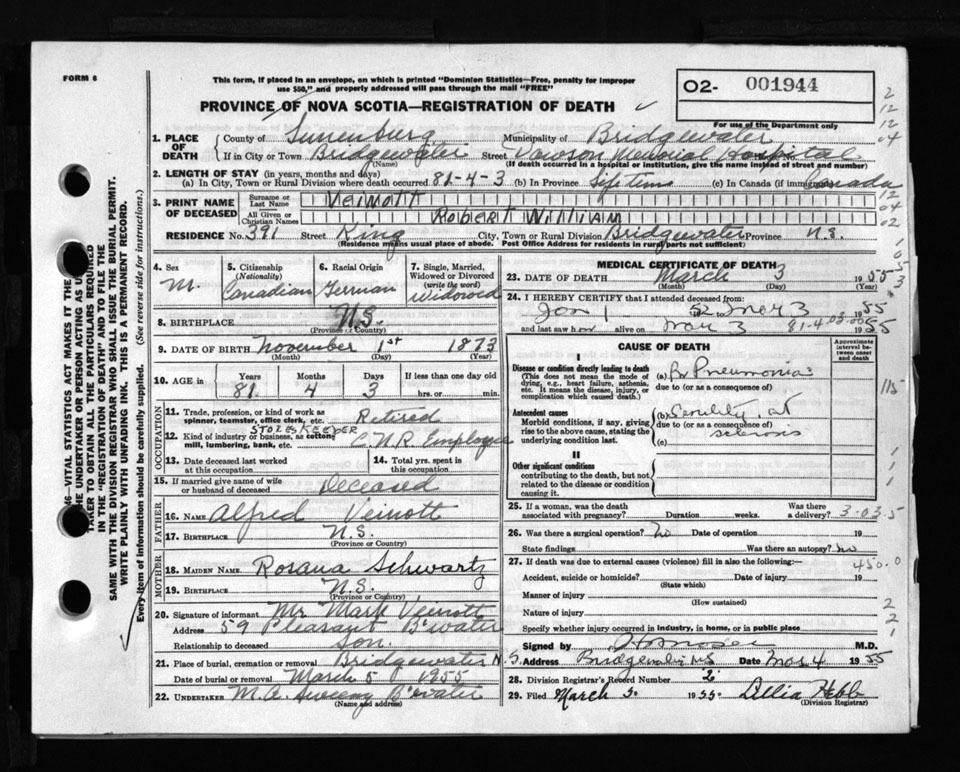 FORM 6
This form, if placed in an envelope, on which is printed "Dominion Statistics—Free, penalty for improper
use $50," and properly addressed will pass through the mail "FREE"
O2- 001944
PROVINCE OF NOVA SCOTIA—REGISTRATION OF DEATH
For use of the Department only
1. PLACE OF DEATH County of Lunenburg Municipality of Bridgewater
If in City or Town Bridgewater Street Dawson Memorial Hospital
(If death occurred in a hospital or institution, give the name instead of street and number)
2. LENGTH OF STAY (in years, months and days)
(a) In City, Town or Rural Division where death occurred 81-4-3 (b) In Province Life time (c) In Canada (if immigrant) Canada
3. PRINT NAME OF DECEASED Surname or Last Name Veinott
All Given or Christian Names Robert William
RESIDENCE No. 391 Street King City, Town or Rural Division Bridgewater Province N.S.
(Residence means usual place of abode. Post Office Address for residents in rural parts not sufficient)
4. Sex M.
5. Citizenship (Nationality) Canadian
6. Racial Origin German
7. Single, Married, Widowed or Divorced (write the word) Widowed
8. BIRTHPLACE N.S.
(Province or Country)
9. DATE OF BIRTH November 1st 1873
(Month) (Day) (Year)
10. AGE in Years Months Days If less than one day old
81 4 3 hrs. or min.
OCCUPATION
11. Trade, profession, or kind of work as spinner, teamster, office clerk, etc. Retired
STORES KEEPER
12. Kind of industry or business, as cotton mill, lumbering, bank, etc. C.N.R. Employee
13. Date deceased last worked at this occupation
14. Total yrs. spent in this occupation
15. If married give name of wife or husband of deceased Deceased
FATHER
16. NAME Alfred Veinott
17. BIRTHPLACE N.S.
(Province or Country)
MOTHER
18. MAIDEN NAME Rosana Schwartz
19. BIRTHPLACE N.S.
(Province or Country)
20. Signature of informant Mr. Mark Veinott
Address 59 Pleasant B'water
Relationship to deceased Son.
21. Place of burial, cremation or removal Bridgewater N.S.
Date of burial or removal March 5 1955
22. UNDERTAKER M.A. Sweeny B'water
(Name and address)
MEDICAL CERTIFICATE OF DEATH
23. DATE OF DEATH March 3 1955
(Month) (Day)
24. I HEREBY CERTIFY that I attended deceased from:
Jan 1 52 to Mar 3 1955
and last saw h alive on Mar 3 1955
81-4-03-00
CAUSE OF DEATH
Approximate interval between onset and death
I
Disease or condition directly leading to death
(This does not mean the mode of dying, e.g., heart failure, asthenia, etc. It means the disease, injury, or complication which caused death.)
(a) Br Pneumonia
due to (or as a consequence of)
Antecedent causes
Morbid conditions, if any, giving rise to the above cause, stating the underlying condition last.
(b) Senility, art
due to (or as a consequence of)
sclerosis
(c)
II
Other significant conditions
contributing to the death, but not related to the disease or condition causing it.
25. If a woman, was the death associated with pregnancy? Duration weeks. Was there a delivery?
3-03.5
26. Was there a surgical operation? No Date of operation 19
State findings Was there an autopsy? no
27. If death was due to external causes (violence) fill in also the following:—
450.0
Accident, suicide or homicide? Date of injury 19
(State which)
Manner of injury
(How sustained)
Nature of injury
Specify whether injury occurred in industry, in home, or in public place
Signed by M.D.
Address Bridgewater N.S. Date Mar 4 1955
28. Division Registrar's Record Number "2"
29. Filed March 5. 1955. Lillia Hebb
(Division Registrar)
46—VITAL STATISTICS ACT MAKES IT THE
THE UNDERTAKER OR PERSON ACTING AS
TAKER TO OBTAIN ALL THE PARTICULARS REQUIRED
IN THE "REGISTRATION OF DEATH" AND TO FILE THE
SAME WITH THE DIVISION REGISTRAR WHO SHALL ISSUE THE BURIAL PERMIT.
WRITE PLAINLY WITH UNFADING INK. THIS IS A PERMANENT RECORD.
Every item of information should be carefully supplied. (See reverse side for instructions.)